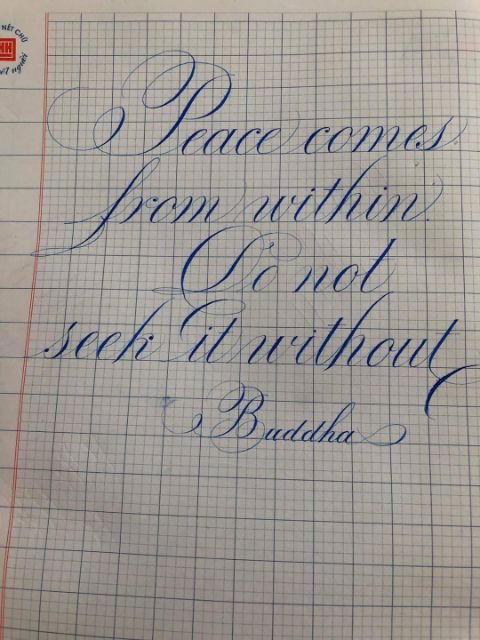 NÉT CHỮ
Peace comes
from within.
Do not
seek it without
Buddha